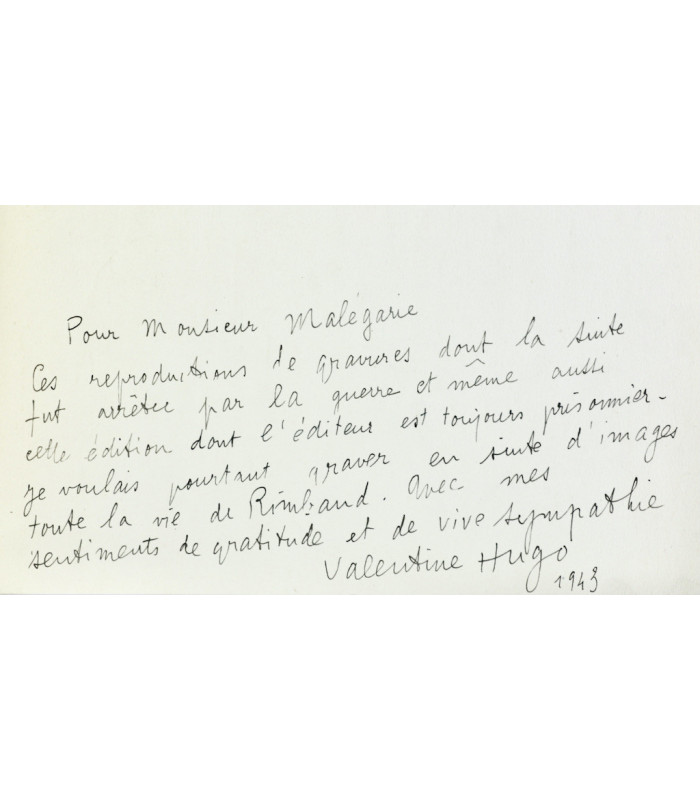 Pour Monsieur Malégarie
Ces reproductions de gravures dont la suite
fut arrêtée par la guerre et même aussi
cette édition dont l'éditeur est toujours prisonnier -
je voulais pourtant graver en suite d'images
toute la vie de Rimbaud. Avec mes
sentiments de gratitude et de vive sympathie
Valentine Hugo
1943